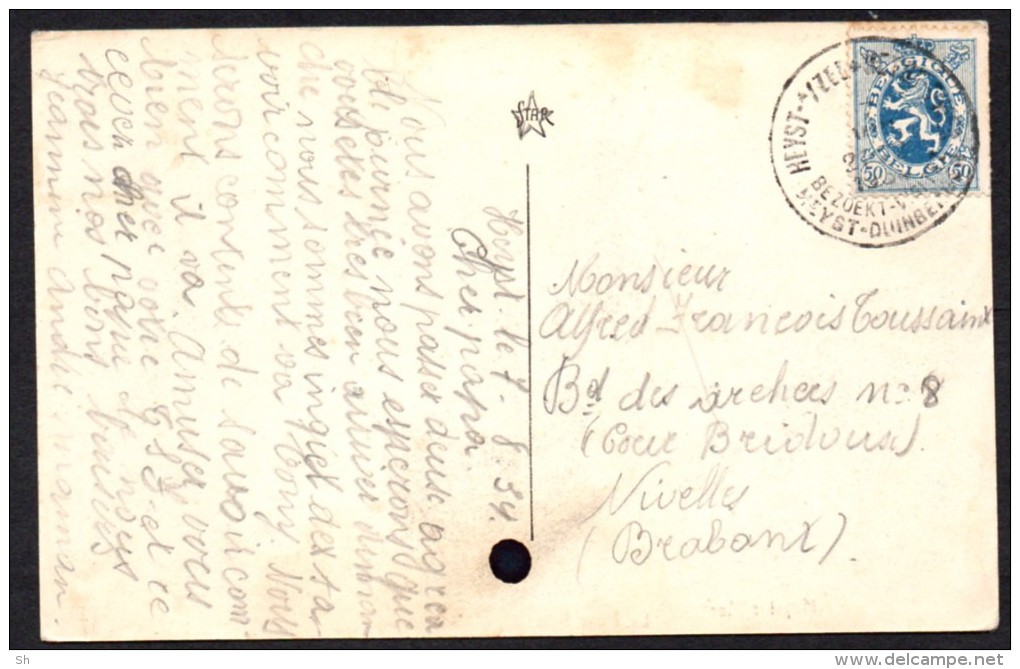 Heyst. le 7. 8. 34.
Cher papa.
Nous avons passer deux agréa
ble journée nous esperons que
vous etes tres bien arriver diman
che nous sommes inquiet de sa
voir comment va Hony. Nous
serons contente de savoir com-
ment il va. Amuser vous
bien avec votre et re
cever cher papa de nous
trous nos bons baisers
Jeannine André maman
STAR
HEYST
BEZOEKT
HEYST-DUINBERGEN
BELGIQUE
BELGIË
50 50
Monsieur
Alfred-Francois Toussaint
Bd des archers no 8
(Cour Bridoux)
Nivelles
(Brabant).
Sh
delcampe.net